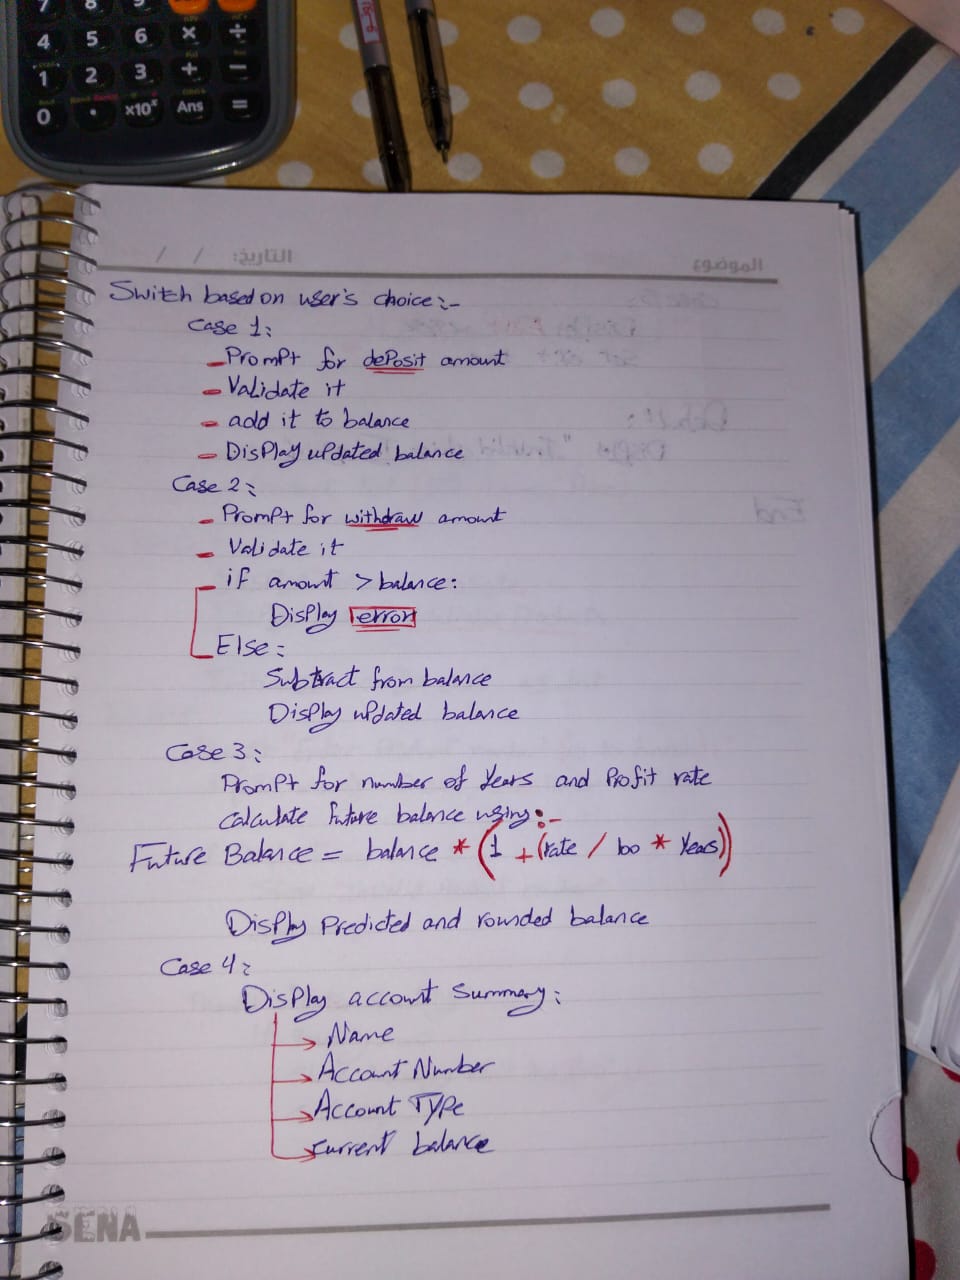 7 8 9
4 5 6 × ÷
1 2 3 + −
0 • ×10ˣ Ans =
التاريخ: / /
الموضوع
Switch based on user's choice:-
Case 1:
- Prompt for deposit amount
- Validate it
- add it to balance
- Display updated balance
Case 2:
- Prompt for withdraw amount
- Validate it
- if amount > balance:
Display error
Else:
Subtract from balance
Display updated balance
Case 3:
Prompt for number of Years and Profit rate
calculate future balance using:-
Future Balance = balance * (1 + (rate / 100 * Years))
Display Predicted and rounded balance
Case 4:
Display account Summary:
→ Name
→ Account Number
→ Account Type
→ current balance
SENA